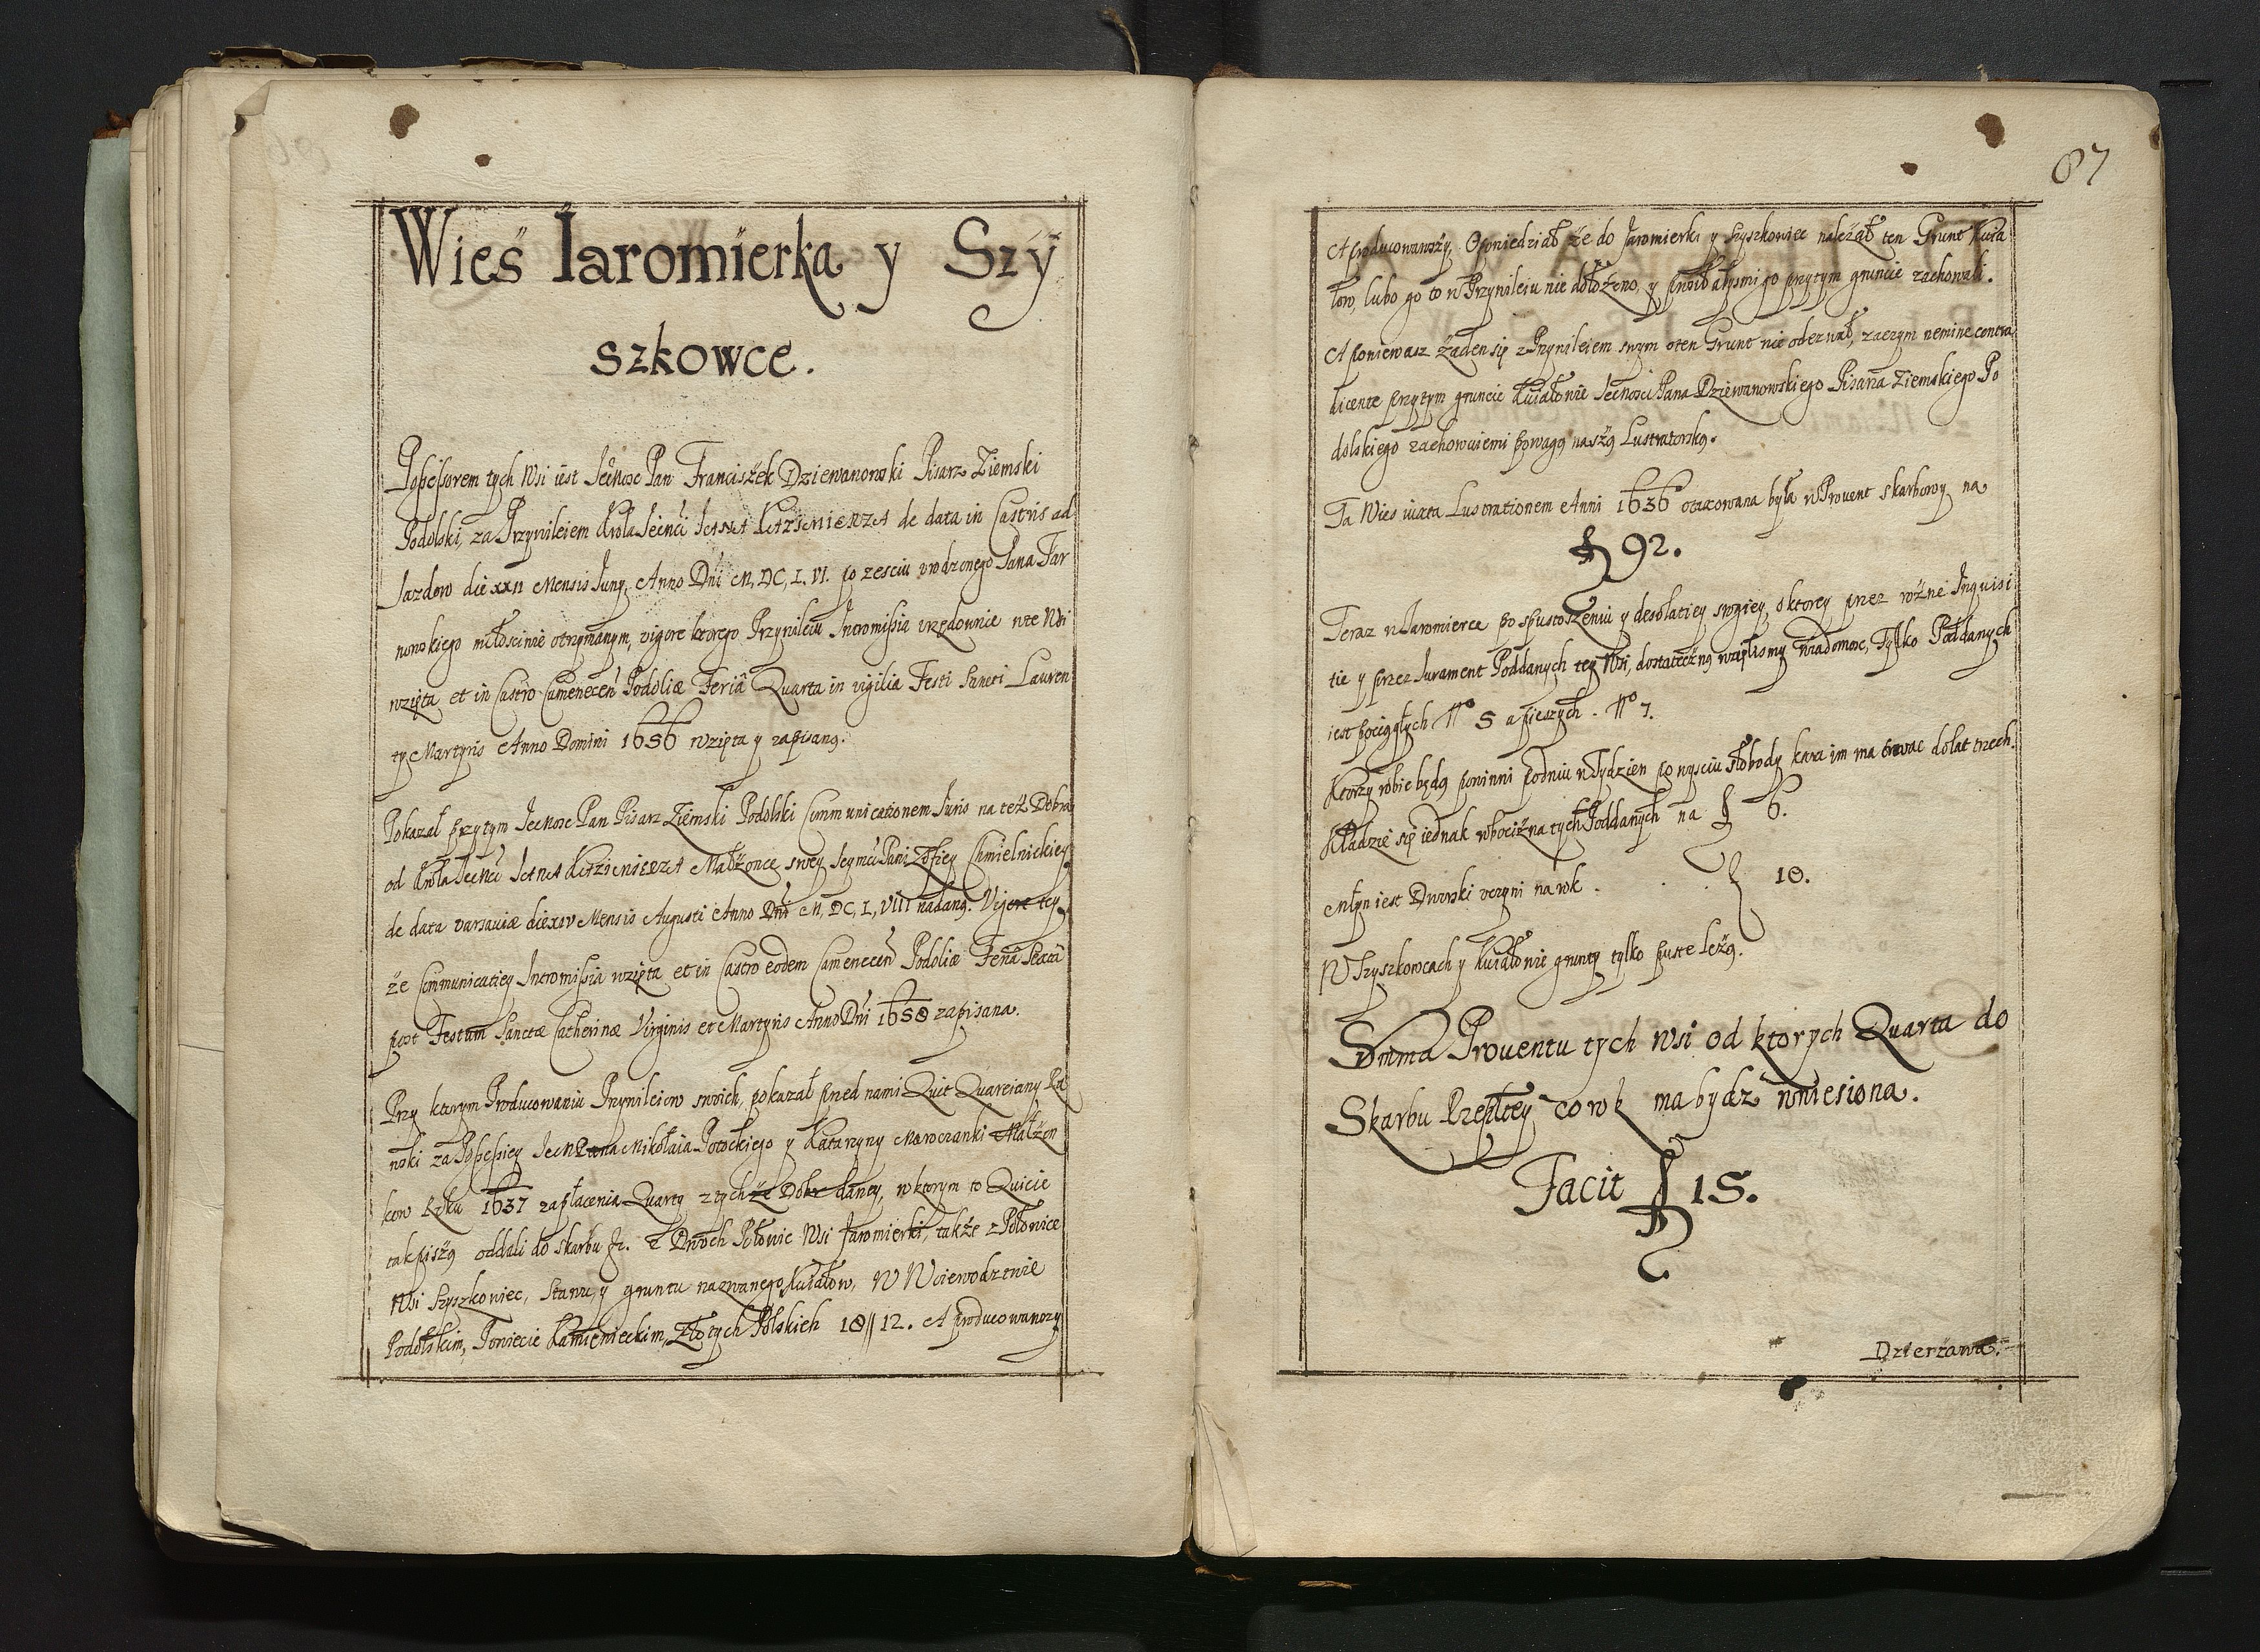 Wieś Iaromierka y Szy
szkowce.
Possessorem tych Wsi iest Jeᵒ Mosc Pan Franciszek Dziewanowski Pisarz Ziemski
Podolski, za Przywileiem Krola Jeᵒ Mci JANA KAZIMIERZA de data in Castris ad
Jazdow die XXII Mensis Juny, Anno Dni M, DC, L, VI. po zesciu urodzonego Jana Tar
nowskiego miłosciwie otrzymanym, vigore ktorego Przywileiu Intromissia urzędownie w te Wsi
wzięta et in Castro Camenecen Podoliæ Feriâ Quarta in vigilia Festi Sancti Lauren
ty Martyris Anno Domini 1656 wzięta y zapisaną.
Pokazał przytym Jeᵒ Mosc Pan Pisarz Ziemski Podolski Communicationem Juris na też Dobra
od Krola Jeᵒ Mci JANA KAZIMIERZA Małżonce swey Jeymci Pani Zofiey Chmielnickiey
de data Varsaviæ die XIV Mensis Augusti Anno Dni M, DC, L, VIII nadaną. Vigore tey
że Communicatiey Intromissia wzięta et in Castro eodem Camenecen Podoliæ Feriâ Sexta
post Festum Sanctæ Catherinæ Virginis et Martyris Anno Dni 1658 zapisana.
Przy ktorym Producowaniu Przywileiow swoich, pokazał przed nami Quit Quarciany Ra
wski za Possessiey Jeᵒ M Pana Mikołaia Potockiego y Katarzyny Małżon
kow Roku 1637 zapłacenia Quarty z tychże Dobr daney, w ktorym to Quicie
tak piszą oddali do skarbu z Dwoch Połowic Wsi Jaromierki, także z Połowice
Wsi Szyszkowiec, Stawu, y gruntu nazwanego Kuiałow, W Woiewodztwie
Podolskim, Powiecie Kamienieckim, Złotych Polskich 18//12. A producowawszy
87
A producowawszy, Opowiedział że do Jaromierki y Szyszkowiec należał ten Grunt Kuia
łow, lubo go to w Przywileiu nie dołożono, y prosił abysmi go przytym gruncie zachowali.
A poniewasz żaden się z Przywileiem swym o ten Grunt nie odezwał, zaczym nemine contra
dicente przytym gruncie Kuiałowie Jeᵒ Mosci Pana Dziewanowskiego Pisarza Ziemskiego Po
dolskiego zachowuiemi powagą naszą Lustratorską.
Ta Wies iuxta Lustrationem Anni 1636 otaxowana była w Prouent skarbowy na
f 92.
Teraz w Jaromierce po spustoszeniu y desolatiey swoiey, o ktorey przez rożne Inquisi
tie y przez Jurament Poddanych tey Wsi, dostateczną wzięlismy wiadomosc, Tylko Poddanych
iest pociągłych Nᵒ 5 a pieszych. Nᵒ 7.
Ktorzy robic będą powinni po dniu w Tydzien po wysciu słobody ktora im ma trwac do lat trzech.
Kładzie się iednak robocizna tych Poddanych na f 6.
Młyn iest Dworski uczyni na rok . . f 10.
W Szyszkowcach y Kuiałowie grunty tylko puste leżą.
Summa Prouentu tych Wsi od ktorych Quarta do
Skarbu Rzeptey co rok ma bydz wniesiona.
Facit f 15.
Dzierżawa.